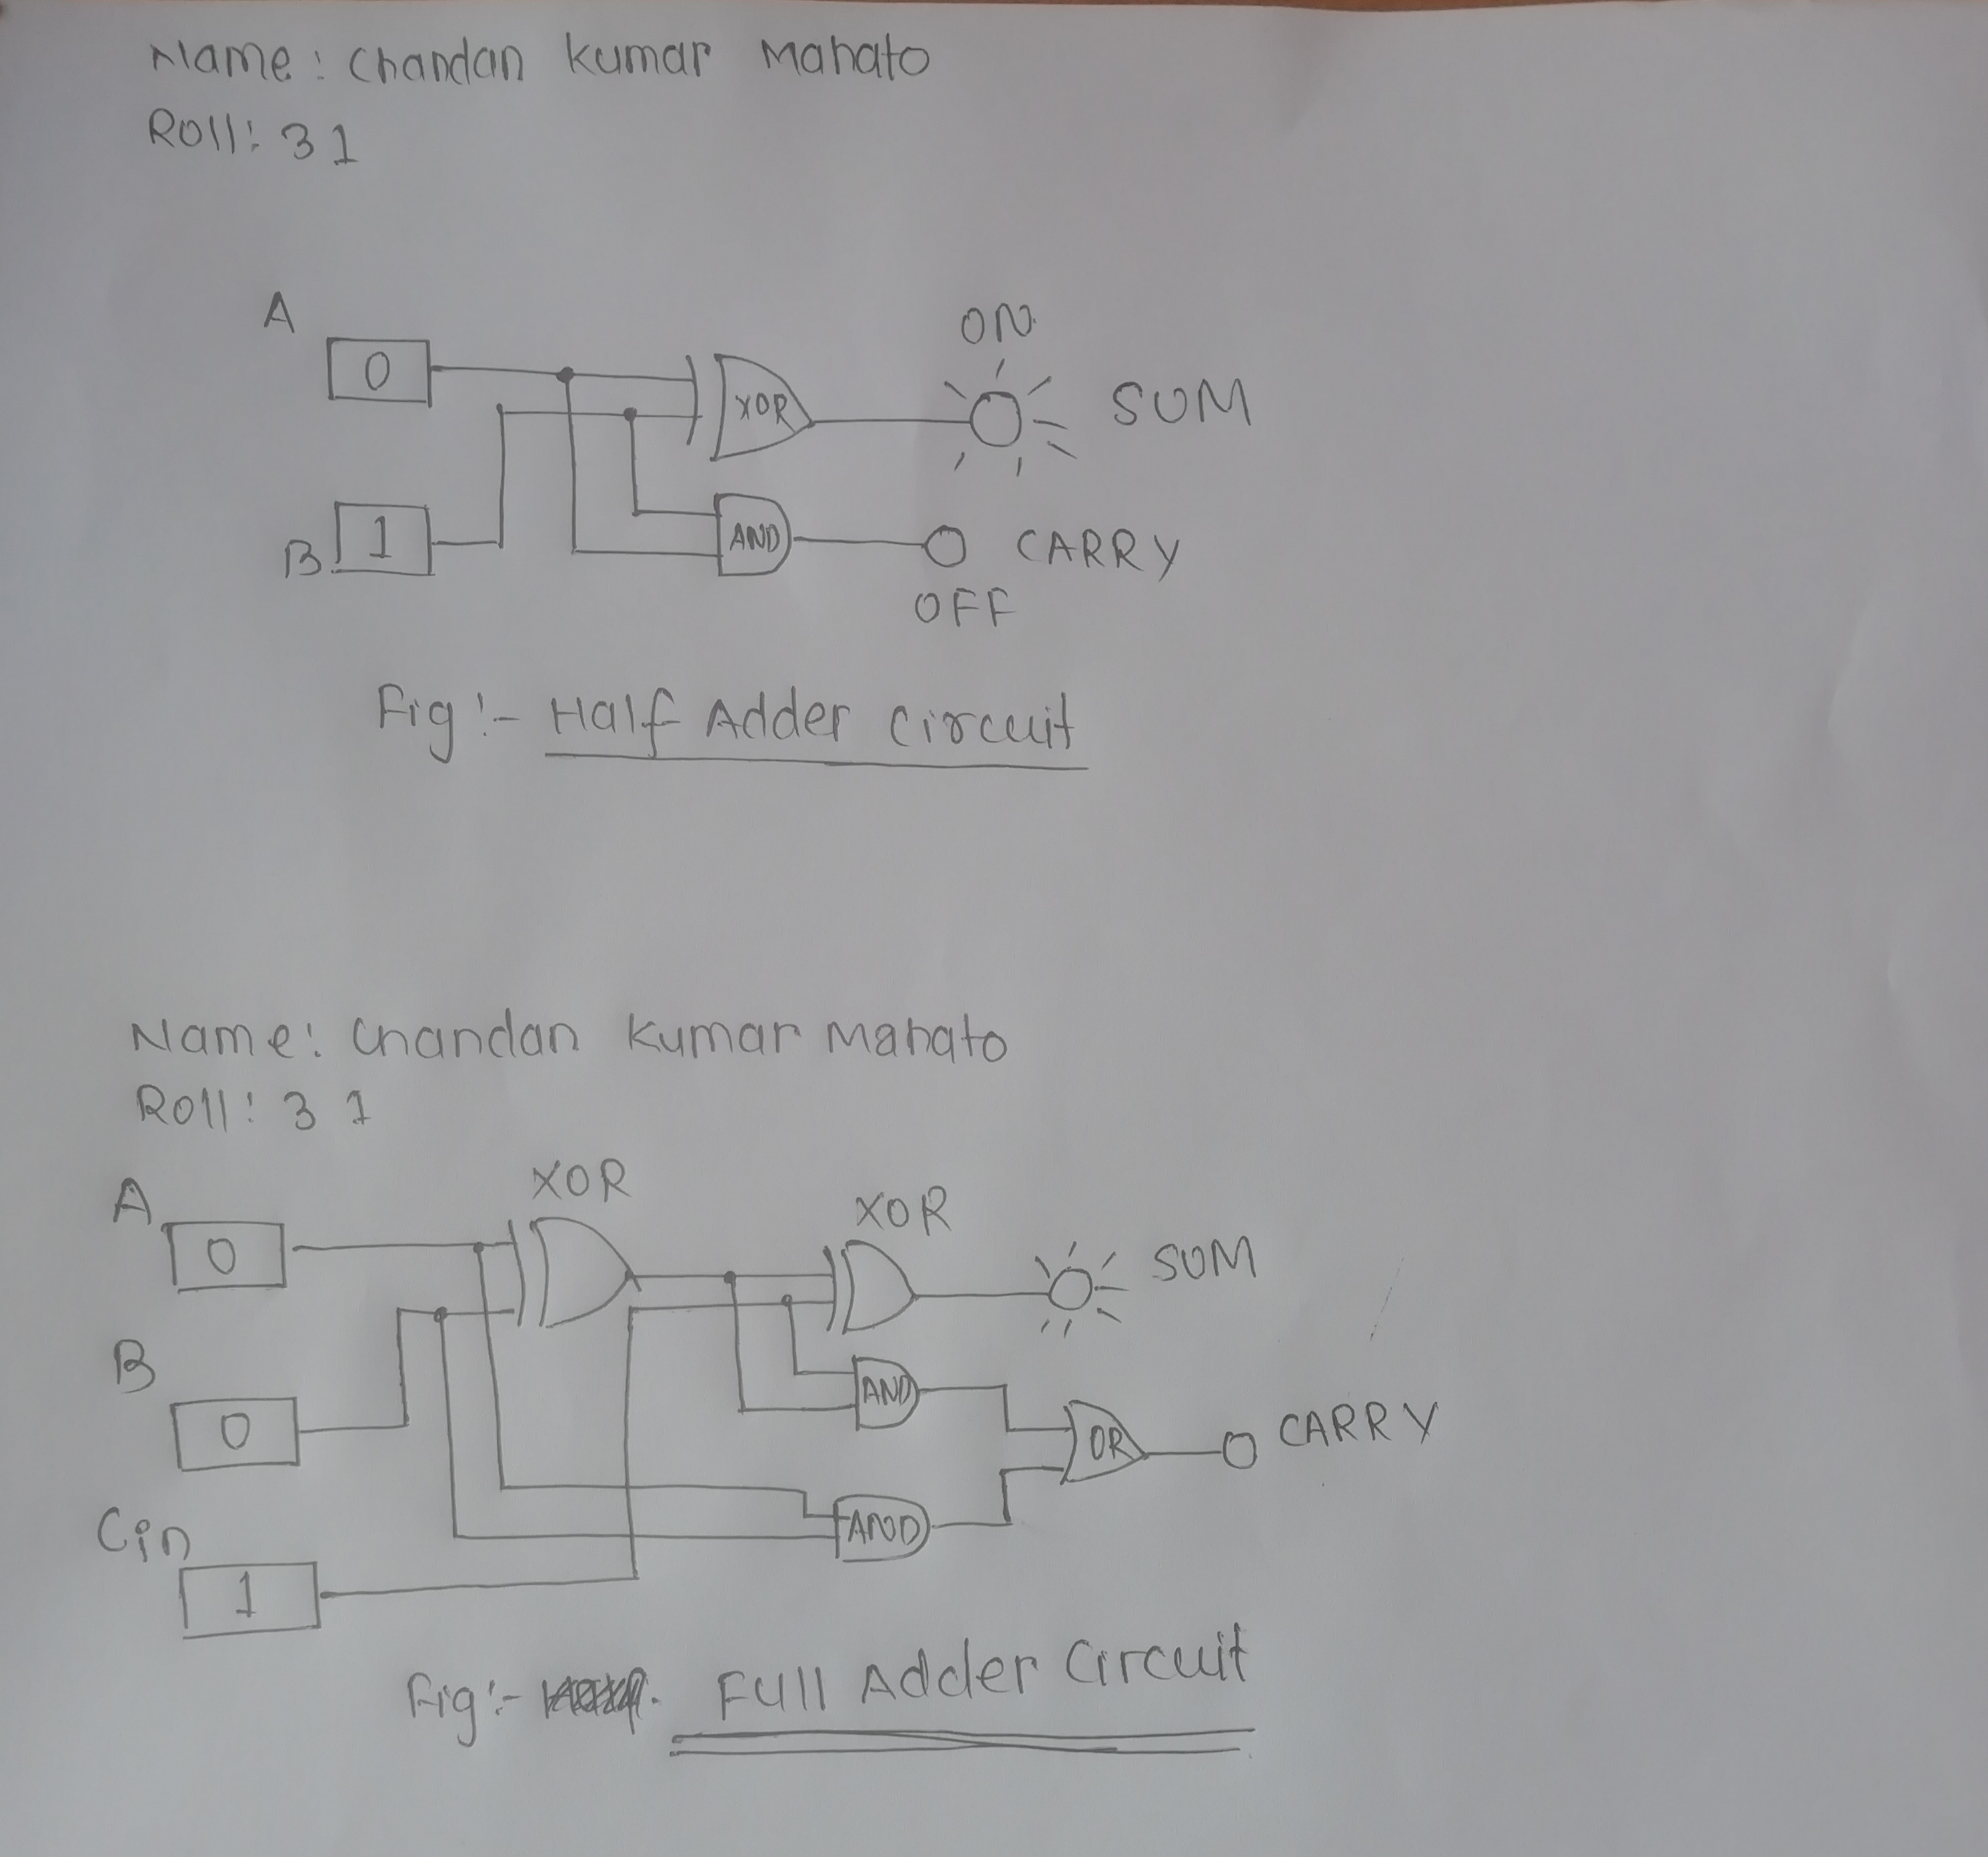 Name: Chandan Kumar Mahato
Roll: 31
A
ON
0
XOR
SUM
B
1
AND
CARRY
OFF
Fig:- Half Adder Circuit
Name: Chandan Kumar Mahato
Roll: 31
XOR
A
XOR
0
SUM
B
AND
0
OR
CARRY
Cin
AND
1
Fig:- Full Adder Circuit